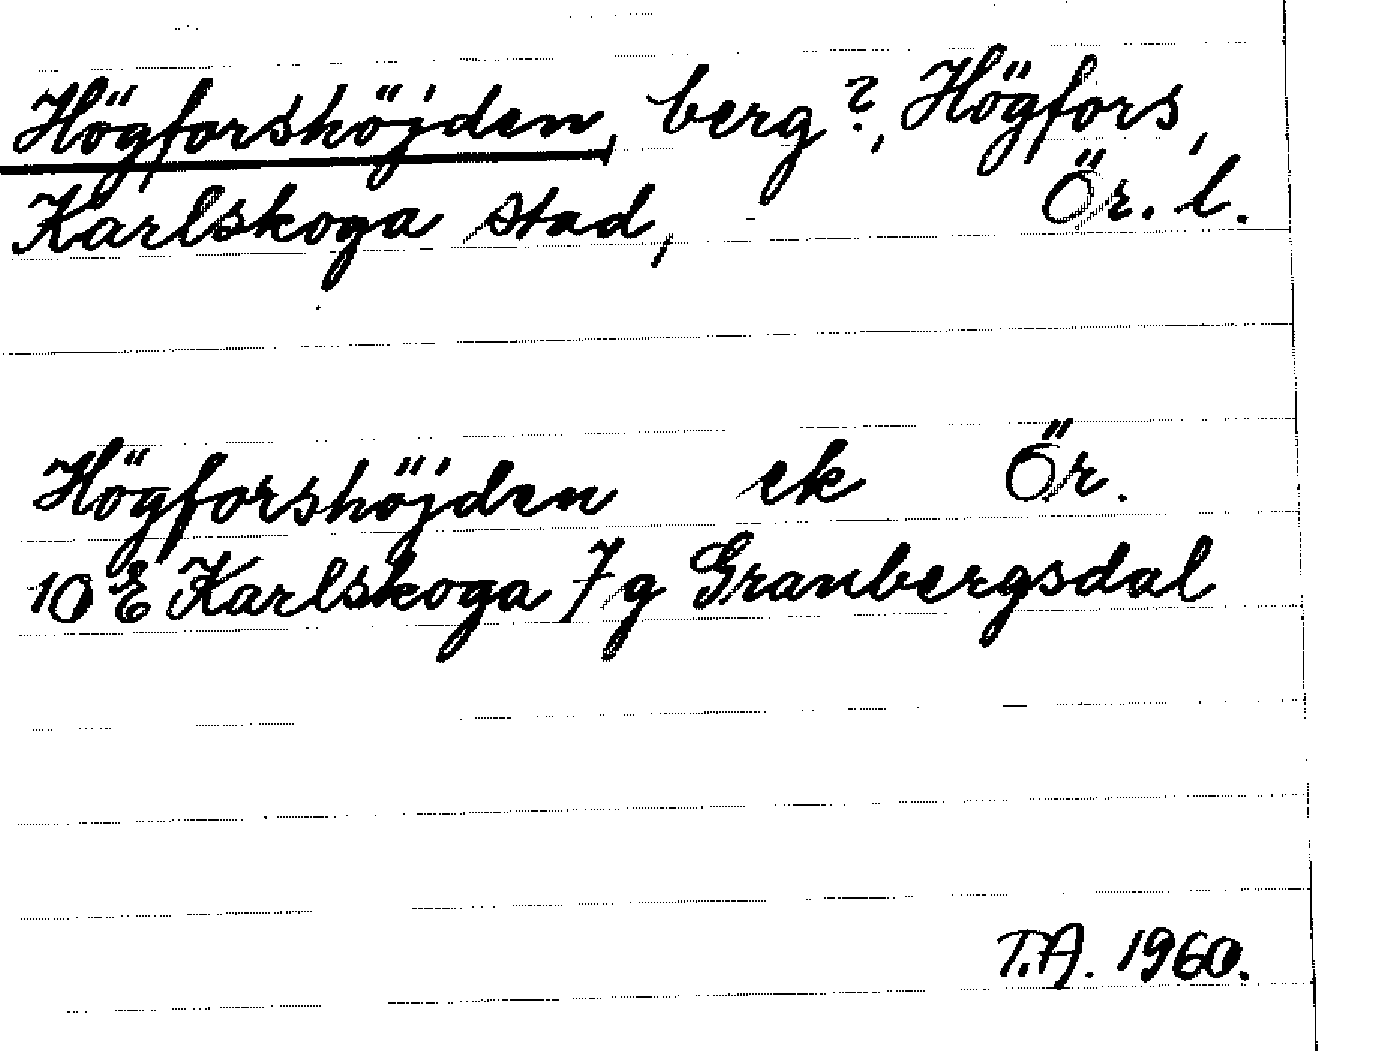 Högforshöjden, berg?, Högfors,
Karlskoga stad, Ör. l.
Högforshöjden ek Ör.
10 E Karlskoga 7 g Granbergsdal
T.A. 1960.